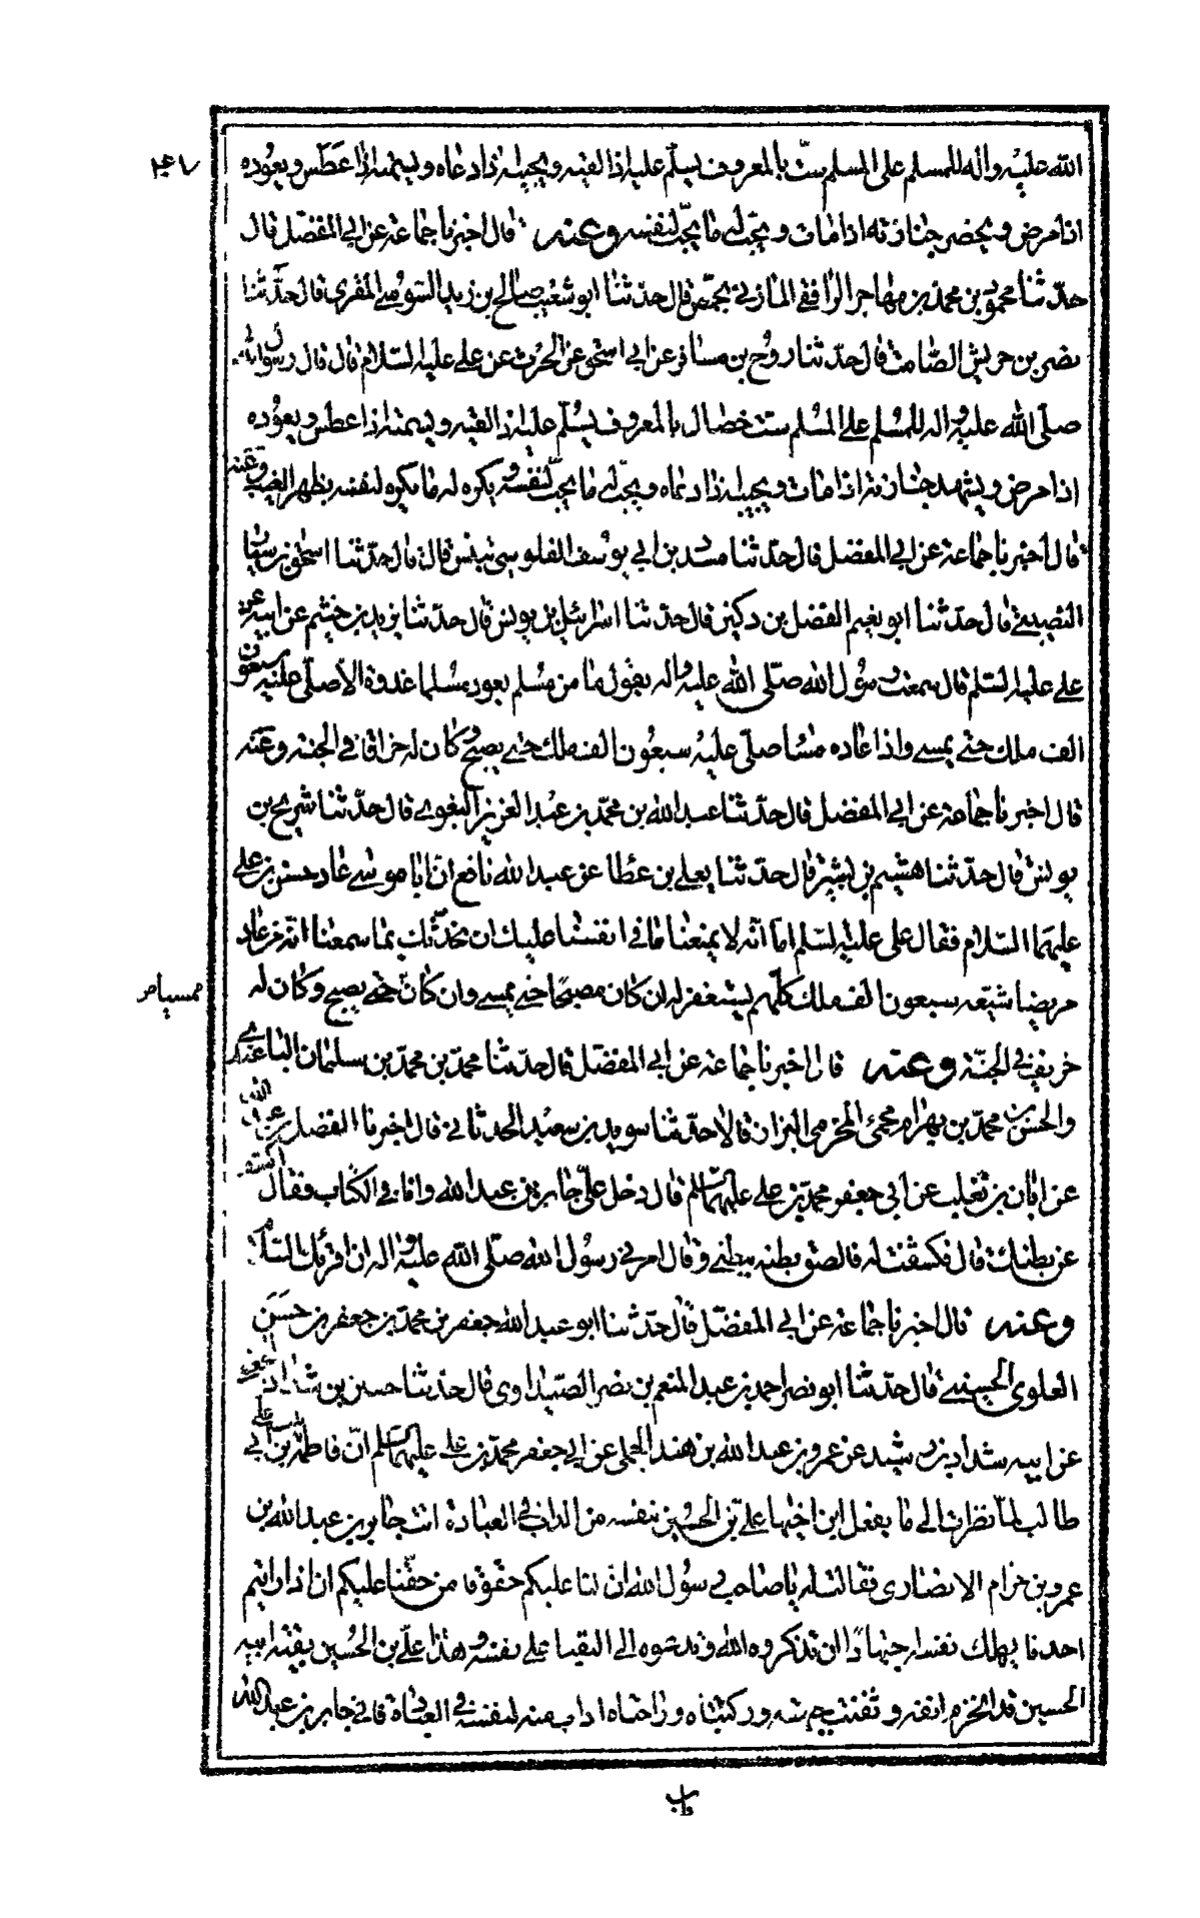 الله عليه واله للمسلم على المسلم ست بالمعروف يسلم عليه اذا لقيه ويجيبه اذا دعاه ويسمته اذا عطس ويعوده
اذا مرض ويحضر جنازته اذا مات ويحب له ما يحب لنفسه وعنه قال اخبرنا جماعة عن ابي المفضل قال
حدثنا محمود بن محمد بن مهاجر الرافقي المازني بحمص قال حدثنا ابو شعيب صالح بن زياد السوسي المقري قال حدثنا
نضر بن حريش الصامت قال حدثنا روح بن مسافر عن ابي اسحق عن الحرث عن علي عليه السلام قال قال رسول الله
صلى الله عليه واله للمسلم على المسلم ست خصال بالمعروف يسلم عليه اذا لقيه ويسمته اذا عطس ويعوده
اذا مرض ويشهد جنازته اذا مات ويجيبه اذا دعاه ويحب له ما يحب لنفسه ويكره له ما يكره لنفسه بظهر الغيب وعنه
قال اخبرنا جماعة عن ابي المفضل قال حدثنا مسدد بن ابي يوسف القلوسي بتنيس قال قال حدثنا اسحق بن سيار
النصيبي قال حدثنا ابو نعيم الفضل بن دكين قال حدثنا اسرائيل بن يونس قال حدثنا ثوير بن خيثم عن ابيه عن
علي عليه السلم قال سمعت رسول الله صلى الله عليه واله يقول ما من مسلم يعود مسلما غدوة الا صلى عليه سبعون
الف ملك حتى يمسي واذا عاده مساء صلى عليه سبعون الف ملك حتى يصبح وكان له خرافا في الجنة وعنه
قال اخبرنا جماعة عن ابي المفضل قال حدثنا عبد الله بن محمد بن عبد العزيز البغوي قال حدثنا شريح بن
يونس قال حدثنا هشيم بن بشير قال حدثنا يعلى بن عطا عن عبد الله نافع ان ابا موسى عاد حسن بن علي
عليهما السلام فقال علي عليه السلم اما انه لا يمنعنا ما في انفسنا عليك ان نحدثك بما سمعنا انه من عاد
مريضا شيعه سبعون الف ملك كلهم يستغفر له ان كان مصبحا حتى يمسي وان كان حتى يصبح وكان له
ممسيا
خريف في الجنة وعنه قال اخبرنا جماعة عن ابي المفضل قال حدثنا محمد بن محمد بن سليمان الباغندي
والحسن بن محمد بن بهرام المخرمي البزاز قالا حدثنا سويد بن سعيد الحدثاني قال اخبرنا الفضل بن عبد الله
عن ابان بن تغلب عن ابي جعفر محمد بن علي عليهما السلم قال دخل علي جابر بن عبد الله وانا في الكتاب فقال اكشف
عن بطنك قال فكشفت له فالصق بطنه ببطني وقال امرني رسول الله صلى الله عليه واله ان اقرئك السلام
وعنه قال اخبرنا جماعة عن ابي المفضل قال حدثنا ابو عبد الله جعفر بن محمد بن جعفر بن حسن
العلوي الحسني قال حدثنا ابو نصر احمد بن عبد المنعم بن نصر الصيداوي قال حدثنا حسين بن شداد الجعفي
عن ابيه شداد بن رشيد عن عمرو بن عبد الله بن هند الجملي عن ابي جعفر محمد بن علي عليهما السلم ان فاطمة بنت علي بن ابي
طالب لما نظرت الى ما يفعل ابن اخيها علي بن الحسين بنفسه من الداب في العبادة اتت جابر بن عبد الله بن
عمرو بن خرام الانصاري فقالت له يا صاحب رسول الله ان لنا عليكم حقوقا من حقنا عليكم ان اذا رايتم
احدنا يهلك نفسه اجتهادا ان تذكروه الله وتدعوه الى البقيا على نفسه وهذا علي بن الحسين بقية ابيه
الحسين قد انخرم انفه وثفنت جبهته وركبتاه وراحتاه ادابا منه لنفسه في العبادة فاتى جابر بن عبد الله
باب